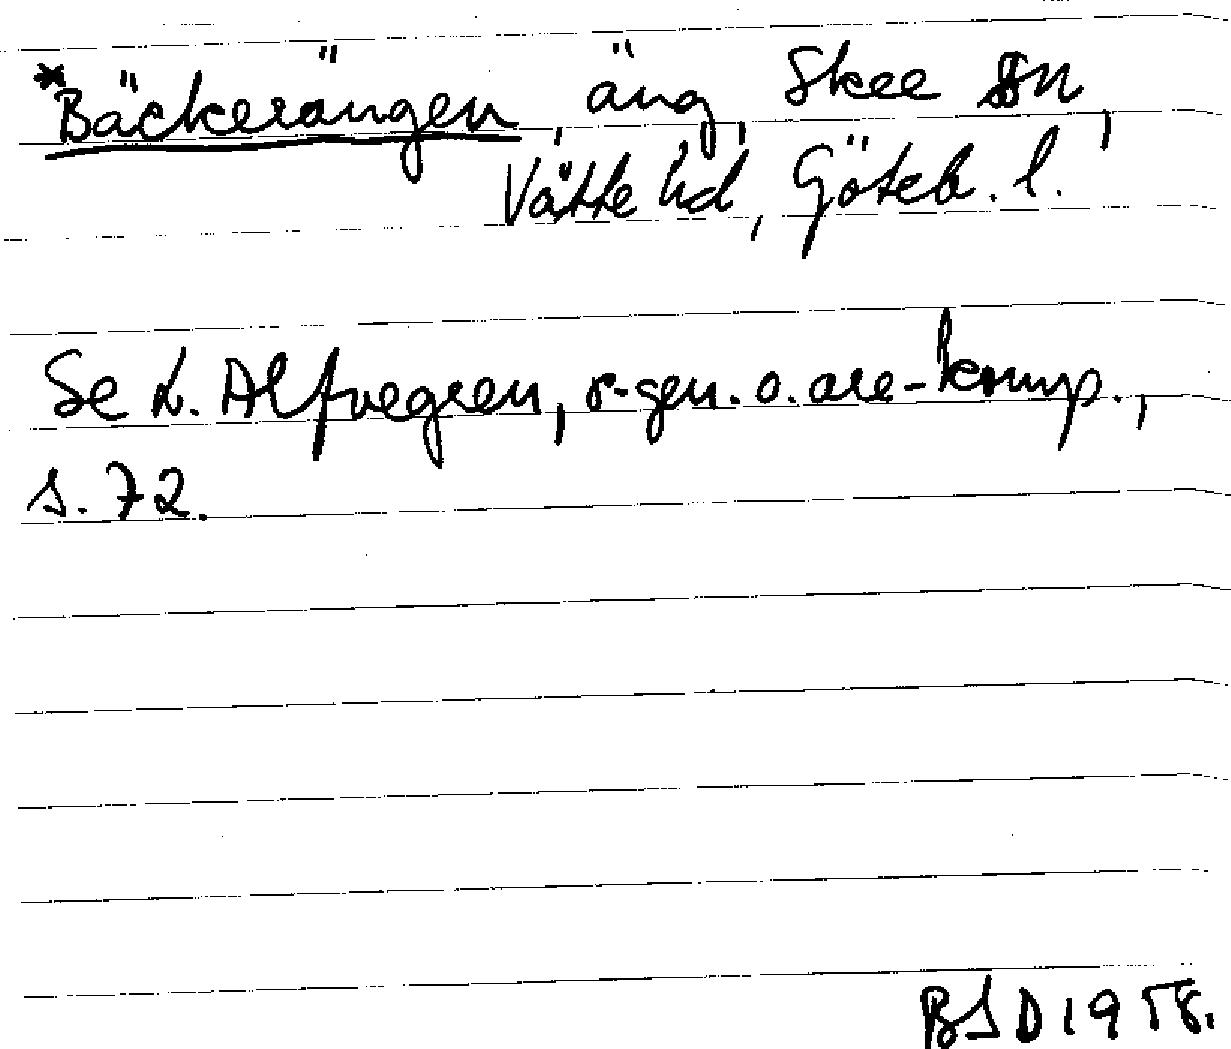 *Bäckerängen, äng, Skee sn,
Vätte hd, Göteb. l.
Se L. Alfvegren, r-gen. o. are-komp.,
s. 72.
BSD 1958.